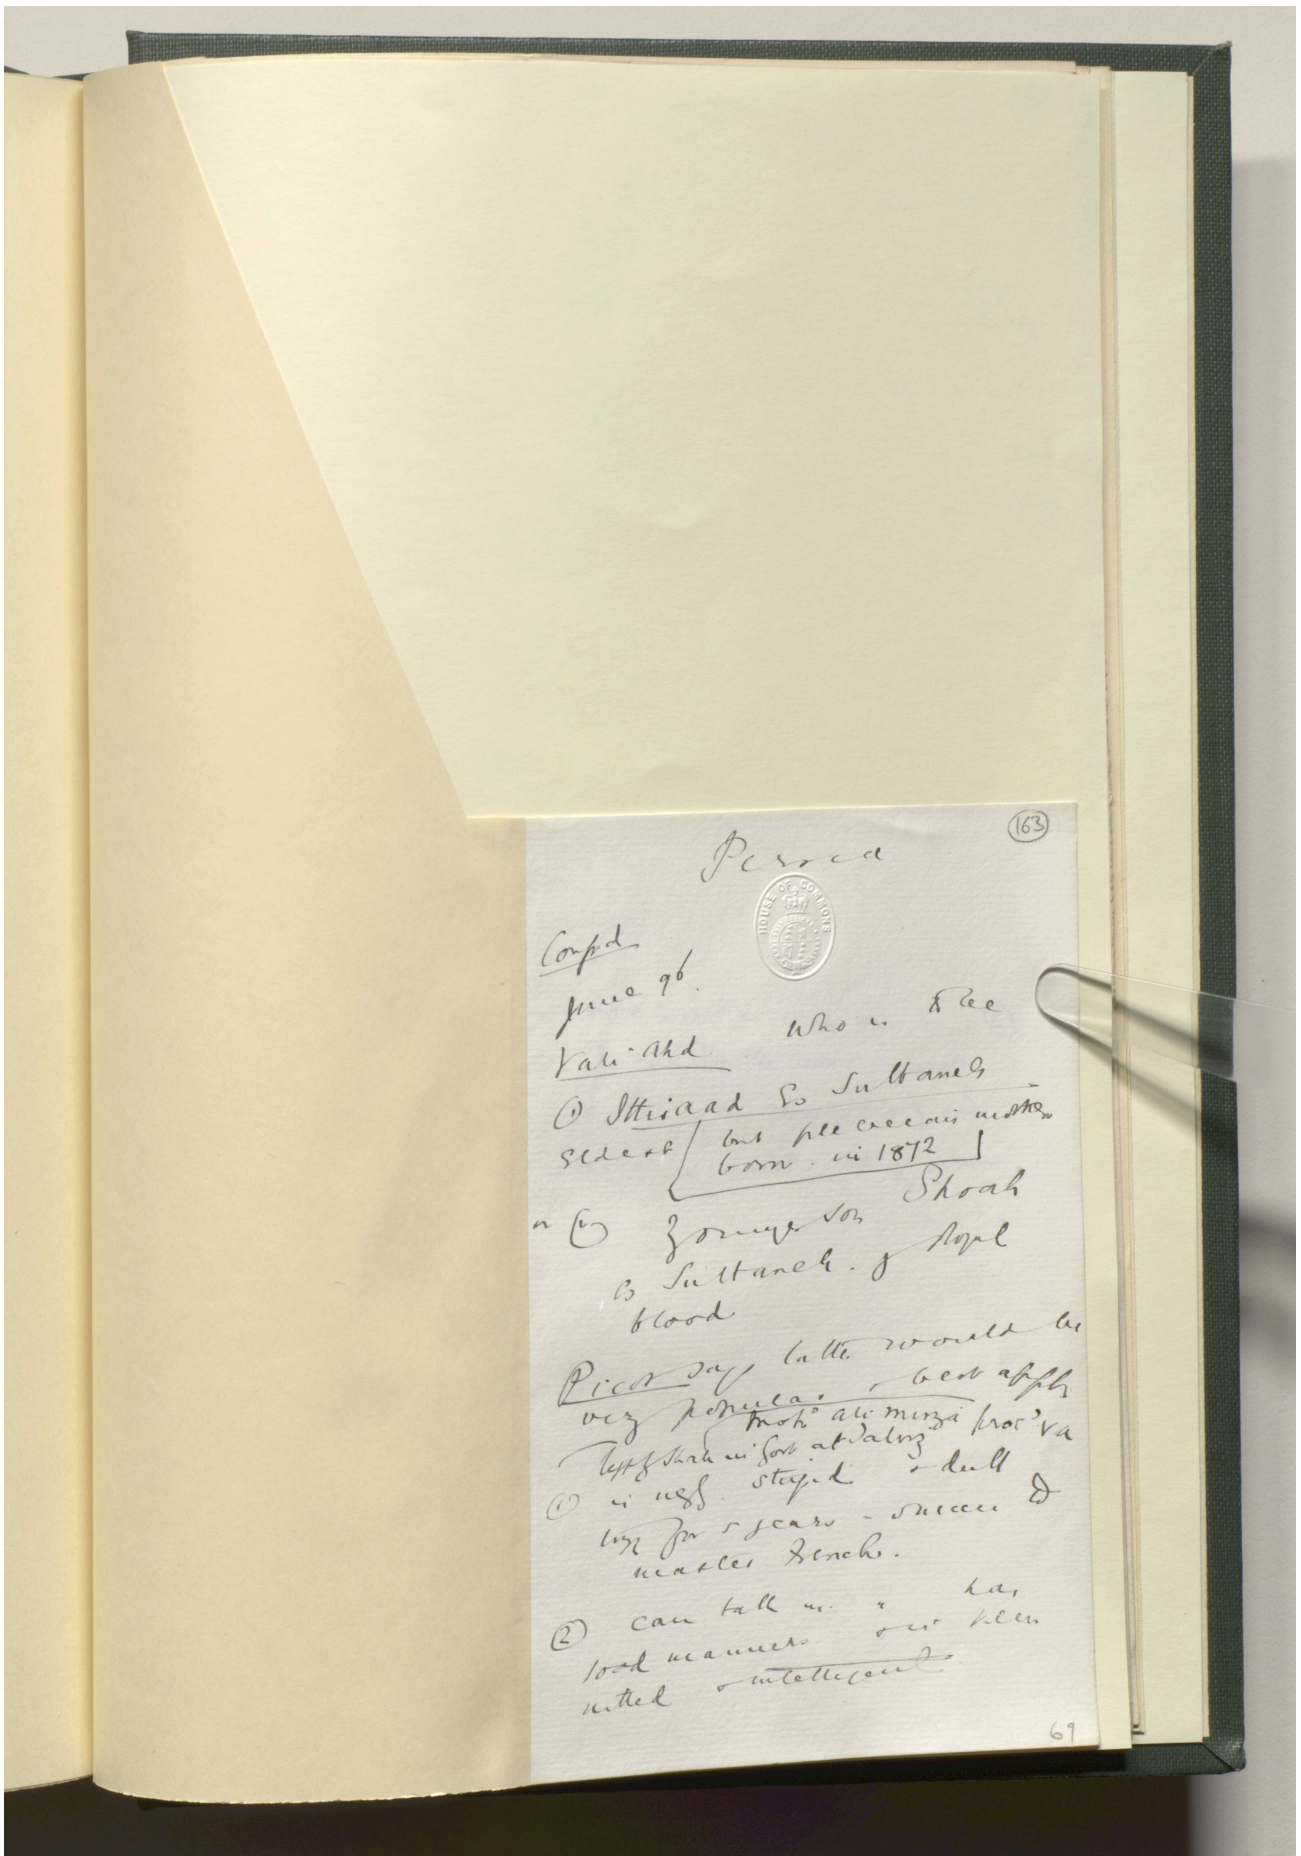 163
Persia
HOUSE OF COMMONS
Confid
June 96.
Vali-Ahd who is to be
(1) Ittizaad Es Sultaneh
eldest but plebeian mother
born in 1872
or (2) younger son Shoah
Es Sultaneh. of royal
blood
Picot says latter would be
very popular, best
Moh^d Ali Mirza proc^d VA
by Shah in Govt at Tabriz
(1) is ugly stupid & dull
try for 5 years - to
master French.
(2) can talk in " has
good manners & is keen
witted & intelligent.
69